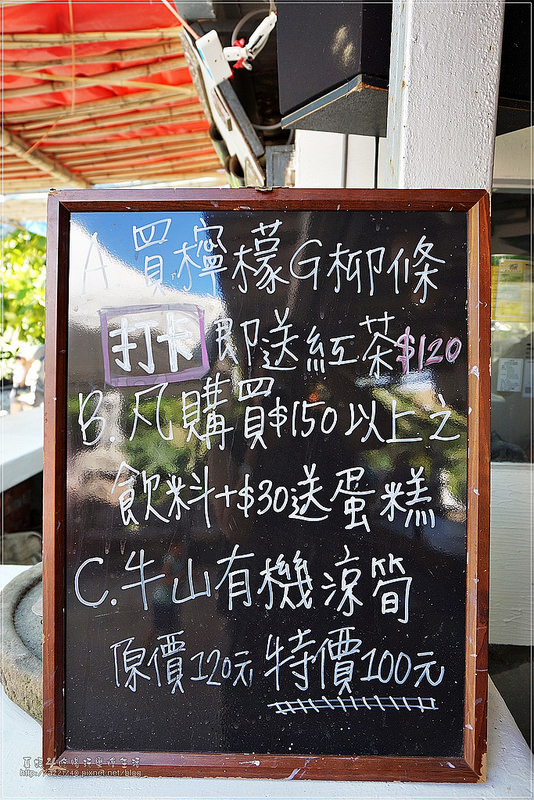 A 買檸檬G柳條
打卡 即送紅茶$120
B.凡購買$150以上之
飲料+$30送蛋糕
C.牛山有機涼筍
原價120元 特價100元